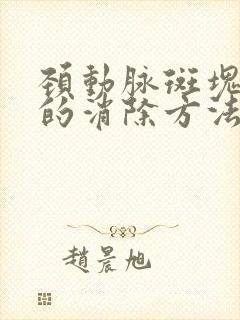 頚動脉斑塊
的消除方法
趙晨旭